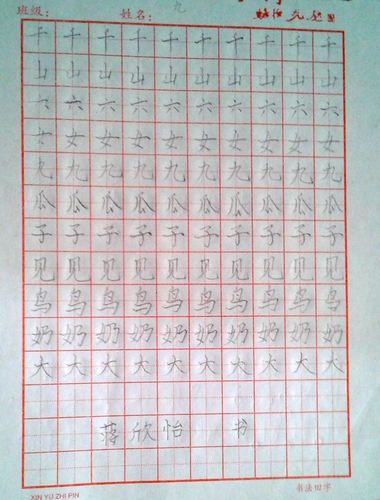 班级: 姓名: 九
千 千 千 千 千 千 千 千 千 千
山 山 山 山 山 山 山 山 山 山
六 六 六 六 六 六 六 六 六 六
女 女 女 女 女 女 女 女 女 女
九 九 九 九 九 九 九 九 九 九
瓜 瓜 瓜 瓜 瓜 瓜 瓜 瓜 瓜 瓜
子 子 子 子 子 子 子 子 子 子
见 见 见 见 见 见 见 见 见 见
鸟 鸟 鸟 鸟 鸟 鸟 鸟 鸟 鸟 鸟
奶 奶 奶 奶 奶 奶 奶 奶 奶 奶
大 大 大 大 大 大 大 大 大 大
蒋 欣 怡 书
XIN YU ZHI PIN 书法田字